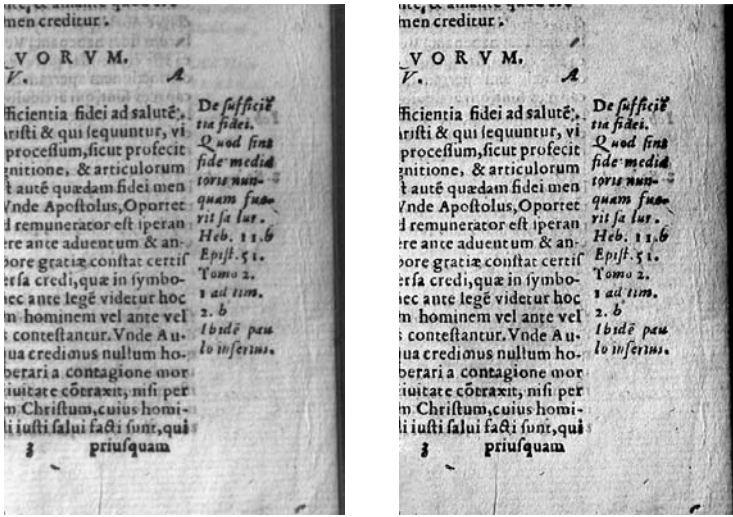 men creditur.
VORVM.
V.
A
fficientia fidei ad salutē:
risti & qui sequuntur, vi
processum, sicut profecit
gnitione, & articulorum
t autē quædam fidei men
Vnde Apostolus, Oportet
d remunerator est speran
ere ante aduentum & an-
pore gratiæ constat certis
ersa credi, quæ in symbo-
nec ante legē videtur hoc
m hominem vel ante vel
s contestantur. Vnde Au-
ua credimus nullum ho-
berari a contagione mor
iuitate cōtraxit, nisi per
m Christum, cuius homi-
li iusti salui facti sunt, qui
3 priusquam
De sufficiē
tia fidei.
Quod sine
fide media
toris nun-
quam fue-
rit sa lus.
Heb. 11.b
Epist. 51.
Tomo 2.
1 ad tim.
2. b
Ibidē pau
lo inferius.
men creditur.
VORVM.
V.
A
fficientia fidei ad salutē:
risti & qui sequuntur, vi
processum, sicut profecit
gnitione, & articulorum
t autē quædam fidei men
Vnde Apostolus, Oportet
d remunerator est speran
ere ante aduentum & an-
pore gratiæ constat certis
ersa credi, quæ in symbo-
nec ante legē videtur hoc
m hominem vel ante vel
s contestantur. Vnde Au-
ua credimus nullum ho-
berari a contagione mor
iuitate cōtraxit, nisi per
m Christum, cuius homi-
li iusti salui facti sunt, qui
3 priusquam
De sufficiē
tia fidei.
Quod sine
fide media
toris nun-
quam fue-
rit sa lus.
Heb. 11.b
Epist. 51.
Tomo 2.
1 ad tim.
2. b
Ibidē pau
lo inferius.